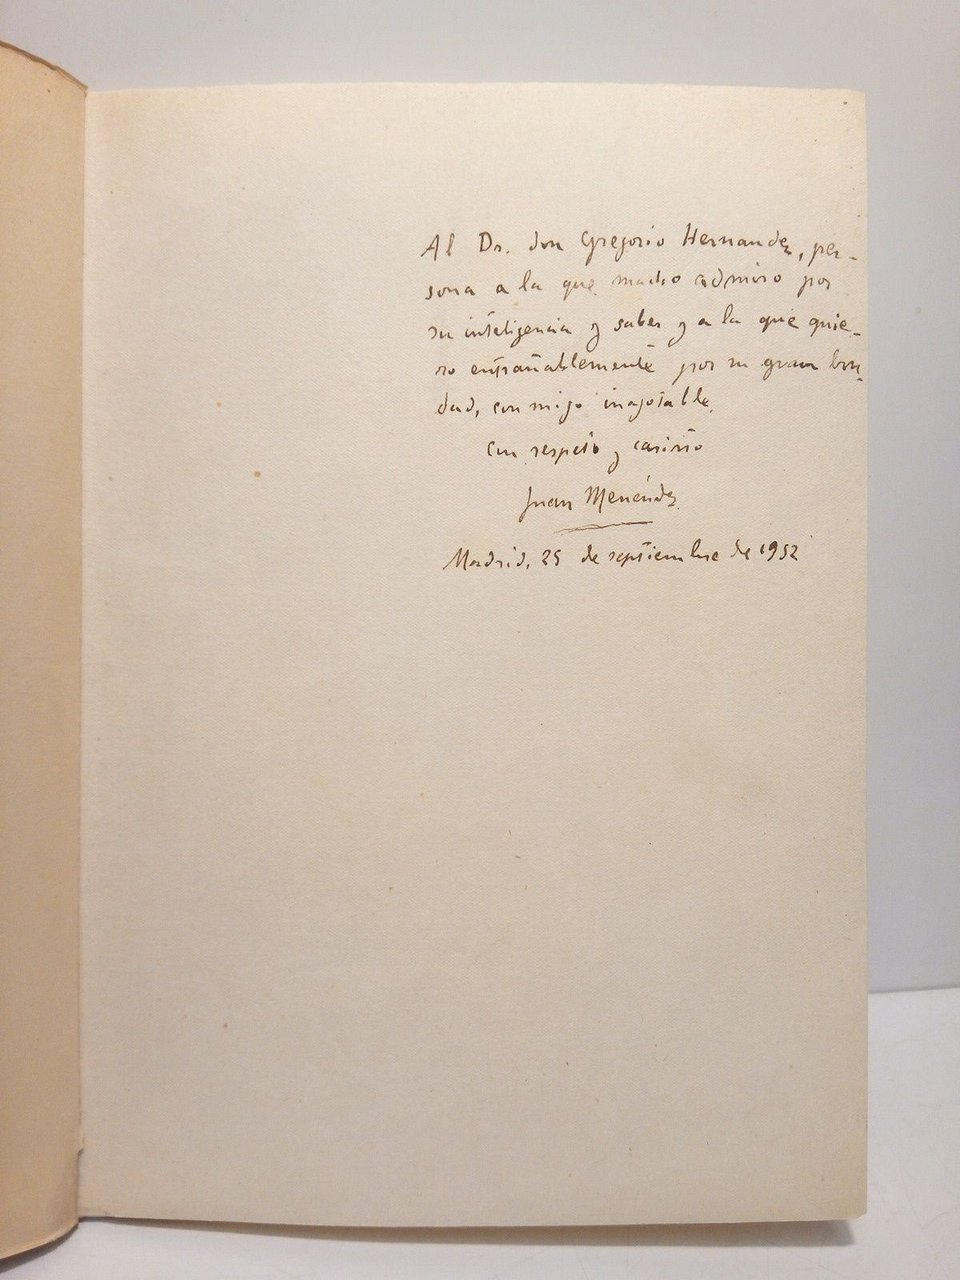 Al Dr. don Gregorio Hernandez, per-
sona a la que mucho admiro por
su inteligencia y saber y a la que quie-
ro entrañablemente por su gran bon-
dad, conmigo inagotable.
Con respeto y cariño
Juan Menéndez
Madrid, 25 de septiembre de 1952